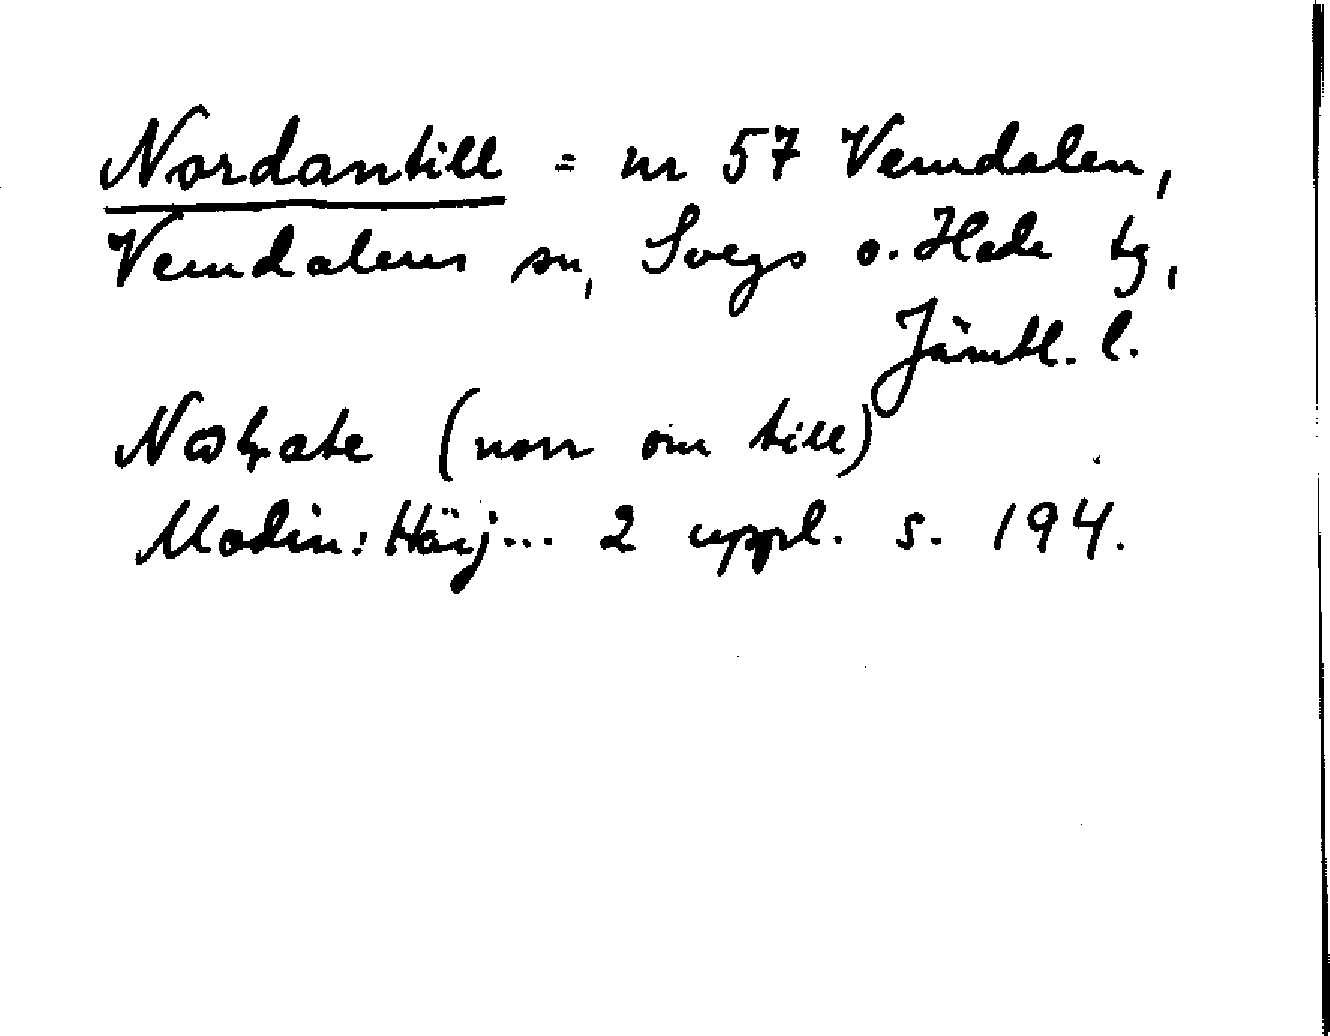 Nordantill = nr 57 Vemdalen,
Vemdalens sn, Svegs o. Hede tg,
Jämtl. l.
(norr om till)
Modin: Härj... 2 uppl. s. 194.